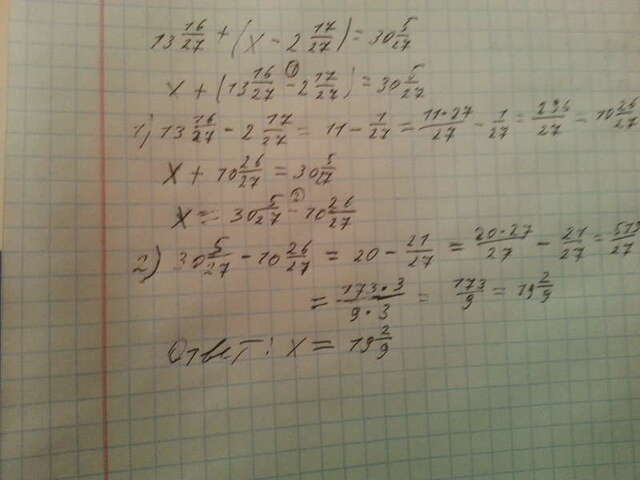 13 16/27 + (x - 2 17/27) = 30 5/27
x + (13 16/27 - 2 17/27) = 30 5/27
1) 13 16/27 - 2 17/27 = 11 - 1/27 = 11·27/27 - 1/27 = 296/27 = 10 26/27
x + 10 26/27 = 30 5/27
x = 30 5/27 - 10 26/27
2) 30 5/27 - 10 26/27 = 20 - 21/27 = 20·27/27 - 21/27 = 519/27
= 173·3/9·3 = 173/9 = 19 2/9
Ответ: x = 19 2/9